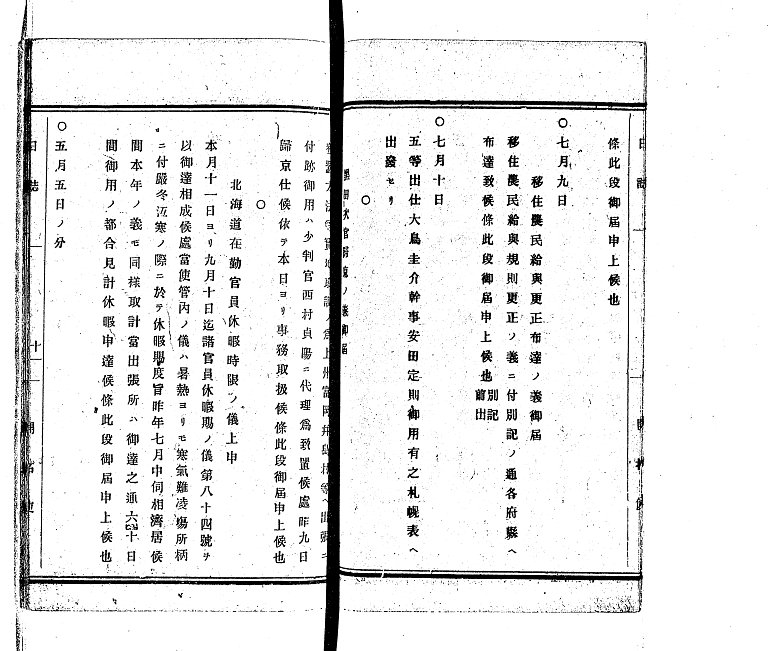 條此段御屆申上候也
○七月九日
移住農民給與更正布達ノ義御屆
移住農民給與規則更正ノ義ニ付別記ノ通各府縣ヘ
布達致候條此段御屆申上候也 別記前出
○七月十日
五等出仕大鳥圭介幹事安田定則御用有之札幌表ヘ
出發セリ
○
付跡御用ハ少判官西村貞陽ニ代理爲致置候處昨九日
歸京仕候依テ本日ヨリ事務取扱候條此段御屆申上候也
○
北海道在勤官員休暇時限ノ儀上申
本月十一日ヨリ九月十日迄諸官員休暇賜ノ儀第八十四號ヲ
以御達相成候處當使管內ノ儀ハ暑熱ヨリモ寒氣難凌場所柄
ニ付嚴冬沍寒ノ際ニ於テ休暇賜度旨昨年七月中伺相濟居候
間本年ノ義モ同樣取計當出張所ハ御達之通六十日
間御用ノ都合見計休暇申達候條此段御屆申上候也
○五月五日ノ分
日誌
十
開拓使